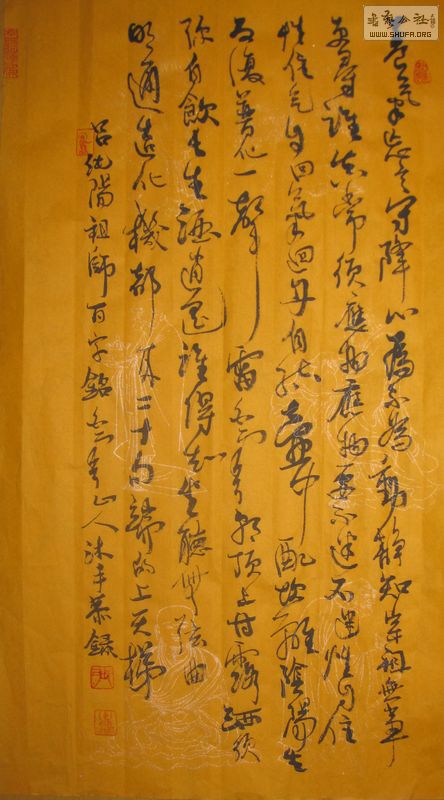 書藝公社
WWW.SHUFA.ORG
養氣忘言守降心為不為動靜知宗祖無事
更尋誰真常須應物應物要不迷不迷性自住
性住氣自回氣迴丹自結壺中配坎離陰陽生
反復普化一聲雷白雲朝頂上甘露洒須
弥自飲長生酒逍遙誰得知坐聽無弦曲
明通造化機都來二十句端的上天梯
呂純陽祖師百字銘雲山人沐手恭錄